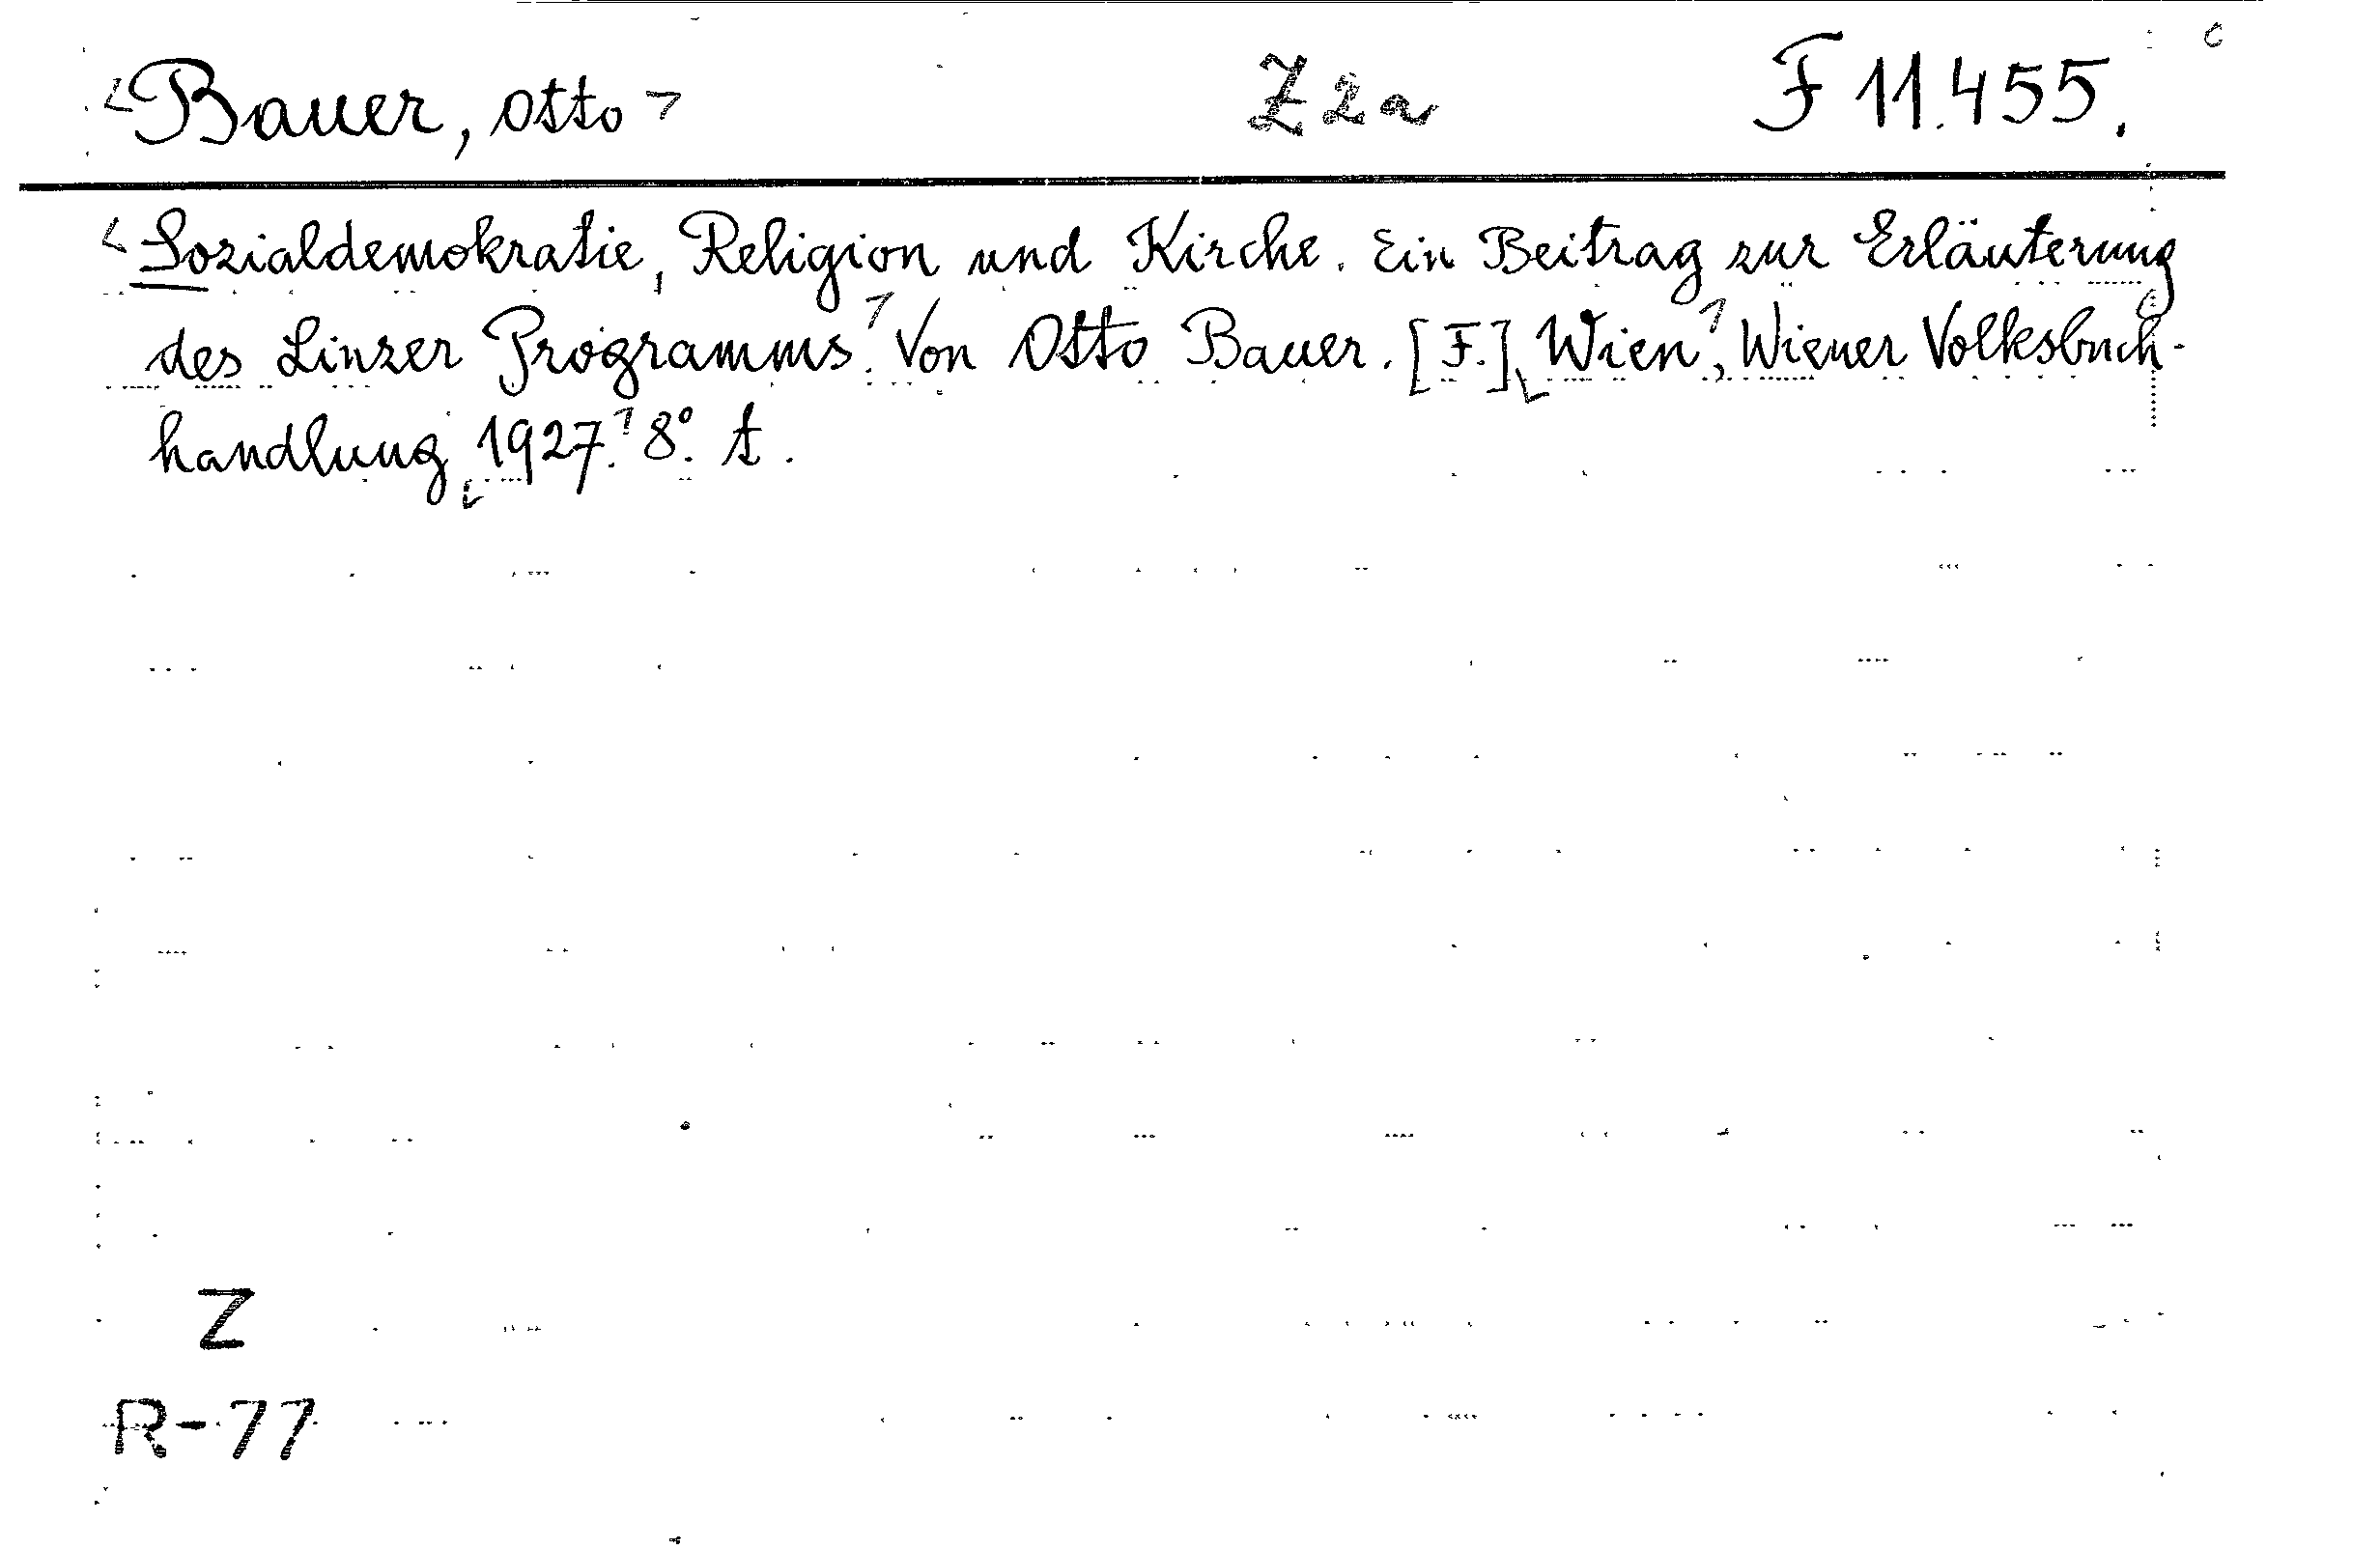 Bauer, Otto Z2a F 11.455.
Sozialdemokratie, Religion und Kirche. Ein Beitrag zur Erläuterung
des Linzer Programms. Von Otto Bauer. [F.] Wien, Wiener Volksbuch-
handlung, 1927. 8°. t.
Z
R-77